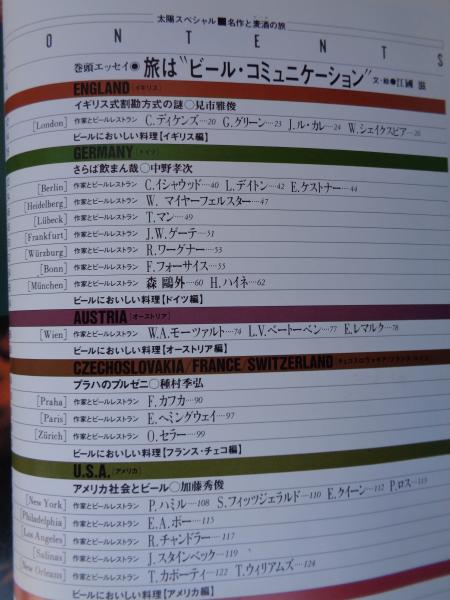 太陽スペシャル■名作と麦酒の旅
O N T E N T S
巻頭エッセイ● 旅は"ビール・コミュニケーション" 文・絵●江國 滋
ENGLAND [イギリス]
イギリス式割勘方式の謎○見市雅俊
[London] 作家とビールレストラン C.ディケンズ…20 G.グリーン…23 J.ル・カレ…24 W.シェイクスピア…26
ビールにおいしい料理【イギリス編】
GERMANY [ドイツ]
さらば飲まん哉○中野孝次
[Berlin] 作家とビールレストラン C.イシャウッド…40 L.デイトン…42 E.ケストナー…44
[Heidelberg] 作家とビールレストラン W. マイヤーフェルスター…47
[Lübeck] 作家とビールレストラン T.マン…49
[Frankfurt] 作家とビールレストラン J.W.ゲーテ…51
[Würzburg] 作家とビールレストラン R.ワーグナー…53
[Bonn] 作家とビールレストラン F.フォーサイス…55
[München] 作家とビールレストラン 森 鷗外…60 H.ハイネ…62
ビールにおいしい料理【ドイツ編】
AUSTRIA [オーストリア]
[Wien] 作家とビールレストラン W.A.モーツァルト…74 L.V.ベートーベン…77 E.レマルク…78
ビールにおいしい料理【オーストリア編】
CZECHOSLOVAKIA/FRANCE/SWITZERLAND
プラハのプルゼニ○種村季弘
[Praha] 作家とビールレストラン F.カフカ…90
[Paris] 作家とビールレストラン E.ヘミングウェイ…97
[Zürich] 作家とビールレストラン O.セラー…99
ビールにおいしい料理【フランス・チェコ編】
U.S.A. [アメリカ]
アメリカ社会とビール○加藤秀俊
[New York] 作家とビールレストラン P.ハミル…108 S.フィッツジェラルド…110 E.クイーン…112 P.ロス…113
[Philadelphia] 作家とビールレストラン E.A.ポー…115
[Los Angeles] 作家とビールレストラン R.チャンドラー…117
[Salinas] 作家とビールレストラン J.スタインベック…119
[New Orleans] 作家とビールレストラン T.カポーティ…122 T.ウィリアムズ…124
ビールにおいしい料理【アメリカ編】